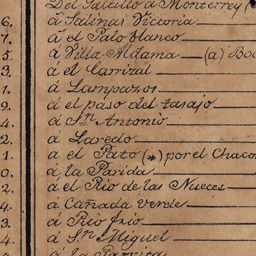 Del Saltillo á Monterrey (
6. á Salinas Victoria
7. á el Palo blanco
5. á Villa Aldama (a) Boc
3. á el Carrizal
1. á Lampazos
9. á el paso del tasajo
4. á Sn Antonio
2. á Laredo
1. á el Pato (*) por el Chacon
0. á la Parida
2. á el Rio de las Nueces
4. á Cañada verde
3. á Rio frio
4. á Sn Miguel
4. á la Parrita